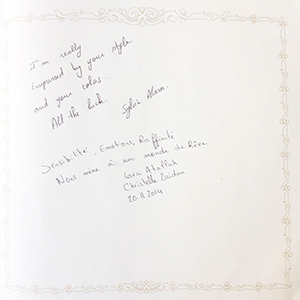 I'm really
impressed by your style
and your colors.
All the luck
Sensibilité, Emotions, Raffinité
Nous mène à un monde de Rêve
Lara Atallah
Christelle Zaidan
20.11.2014